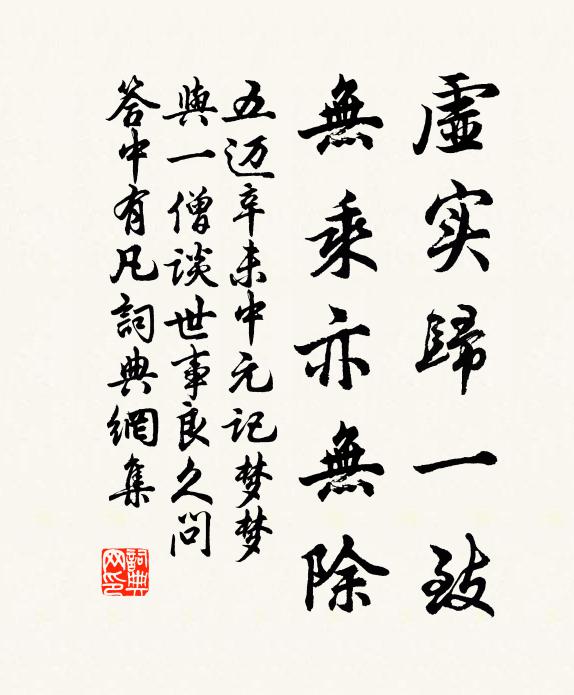 虛实歸一致
無乘亦無除
五迈辛未中元记梦梦
與一僧談世事良久问
答中有凡詞典網集
詞典网印